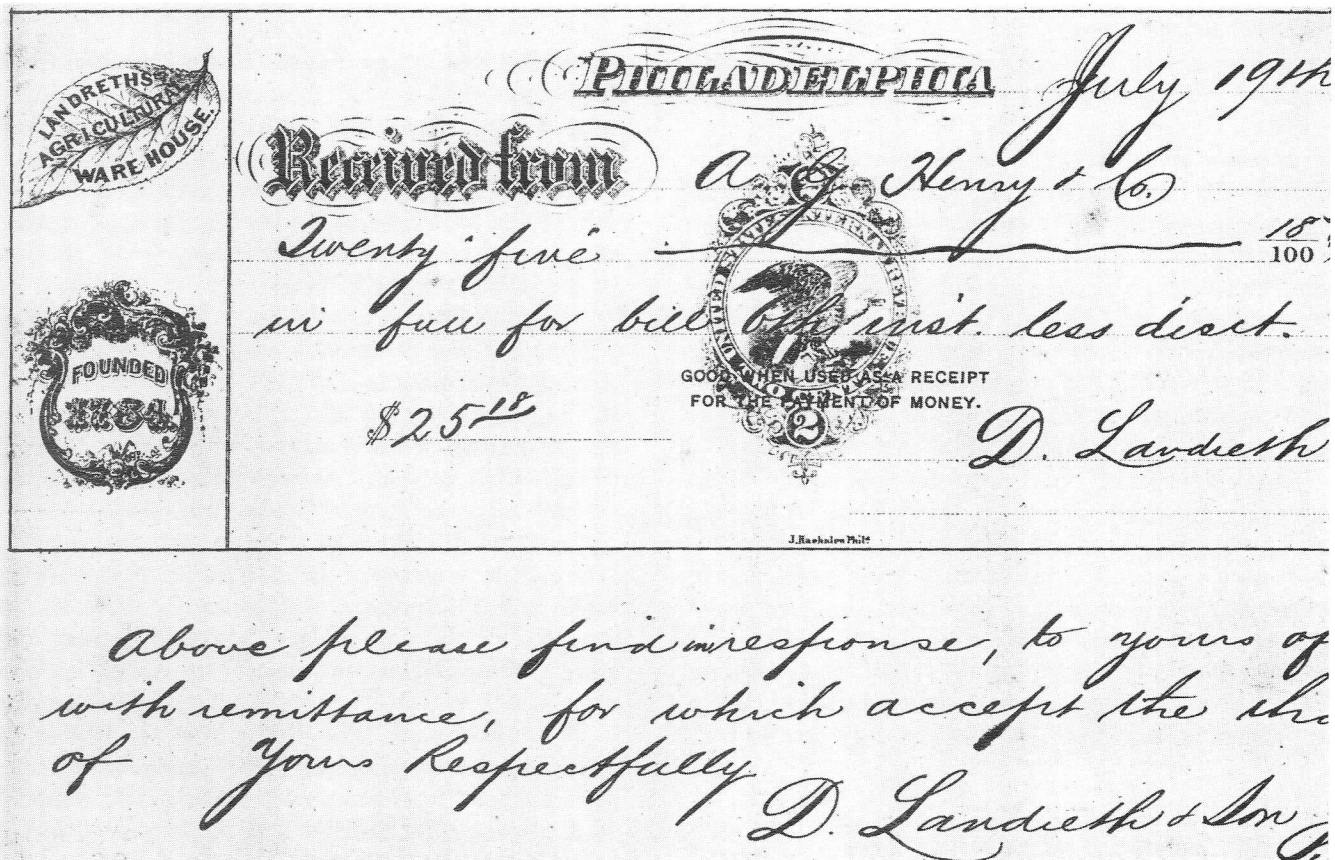 LANDRETHS
AGRICULTURAL
WARE HOUSE.
FOUNDED
1784
PHILADELPHIA July 19th
Received from A G Henry & Co.
Twenty five 18/100
in full for bill inst. less disct.
UNITED STATES INTERNAL REVENUE
GOOD WHEN USED AS A RECEIPT
FOR THE PAYMENT OF MONEY.
2
$25 18
D. Landreth
Above please find in response, to yours of
with remittance, for which accept the
of Yours Respectfully
D. Landreth & Son